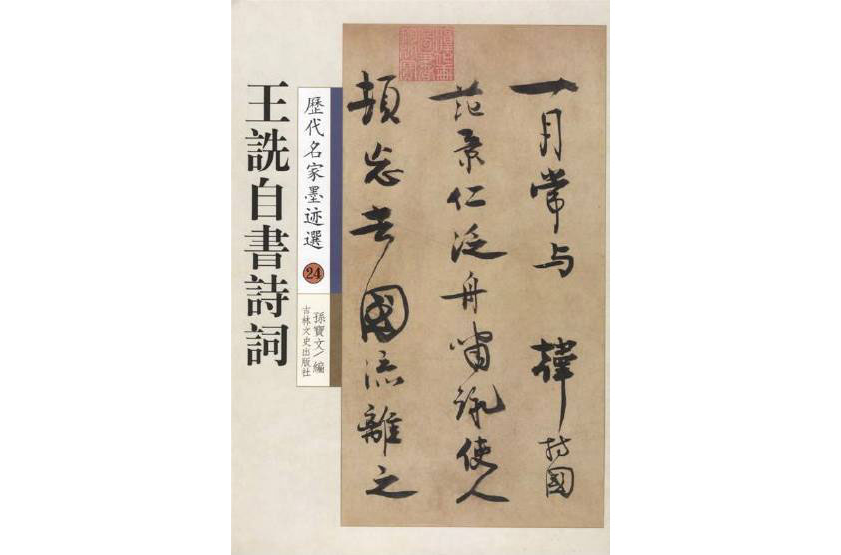 王詵自書詩詞
歷代名家墨迹選
24
孫寶文/編
吉林文史出版社
月常与 韓持國
范景仁泛舟嘯詠使人
頓忘去國流離之